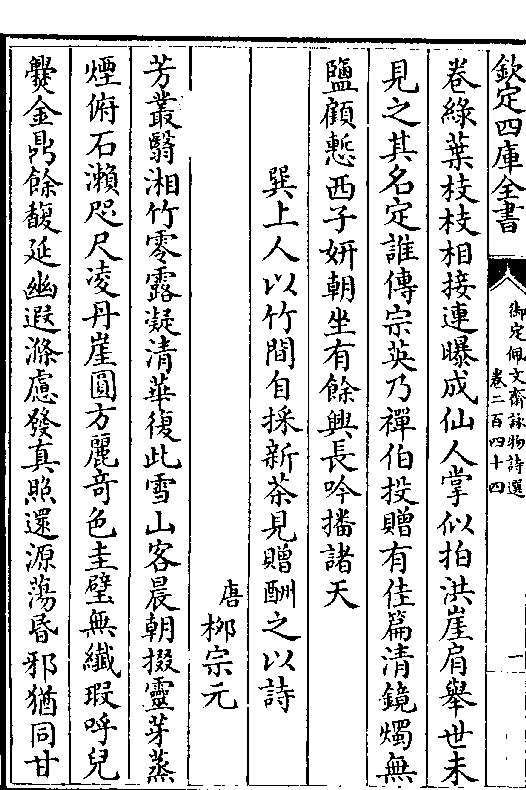 欽定四庫全書
御定佩文齋詠物詩選
卷二百四十四
一
卷綠葉枝枝相接連曝成仙人掌似拍洪崖肩舉世未
見之其名定誰傳宗英乃禪伯投贈有佳篇清鏡燭無
鹽顧慙西子妍朝坐有餘興長吟播諸天
巽上人以竹間自採新茶見贈酬之以詩
唐
柳宗元
芳叢翳湘竹零露凝清華復此雪山客晨朝掇靈芽蒸
煙俯石瀨咫尺凌丹崖圓方麗竒色圭璧無纖瑕呼兒
爨金鼎餘馥延幽遐滌慮發真照還源蕩昏邪猶同甘